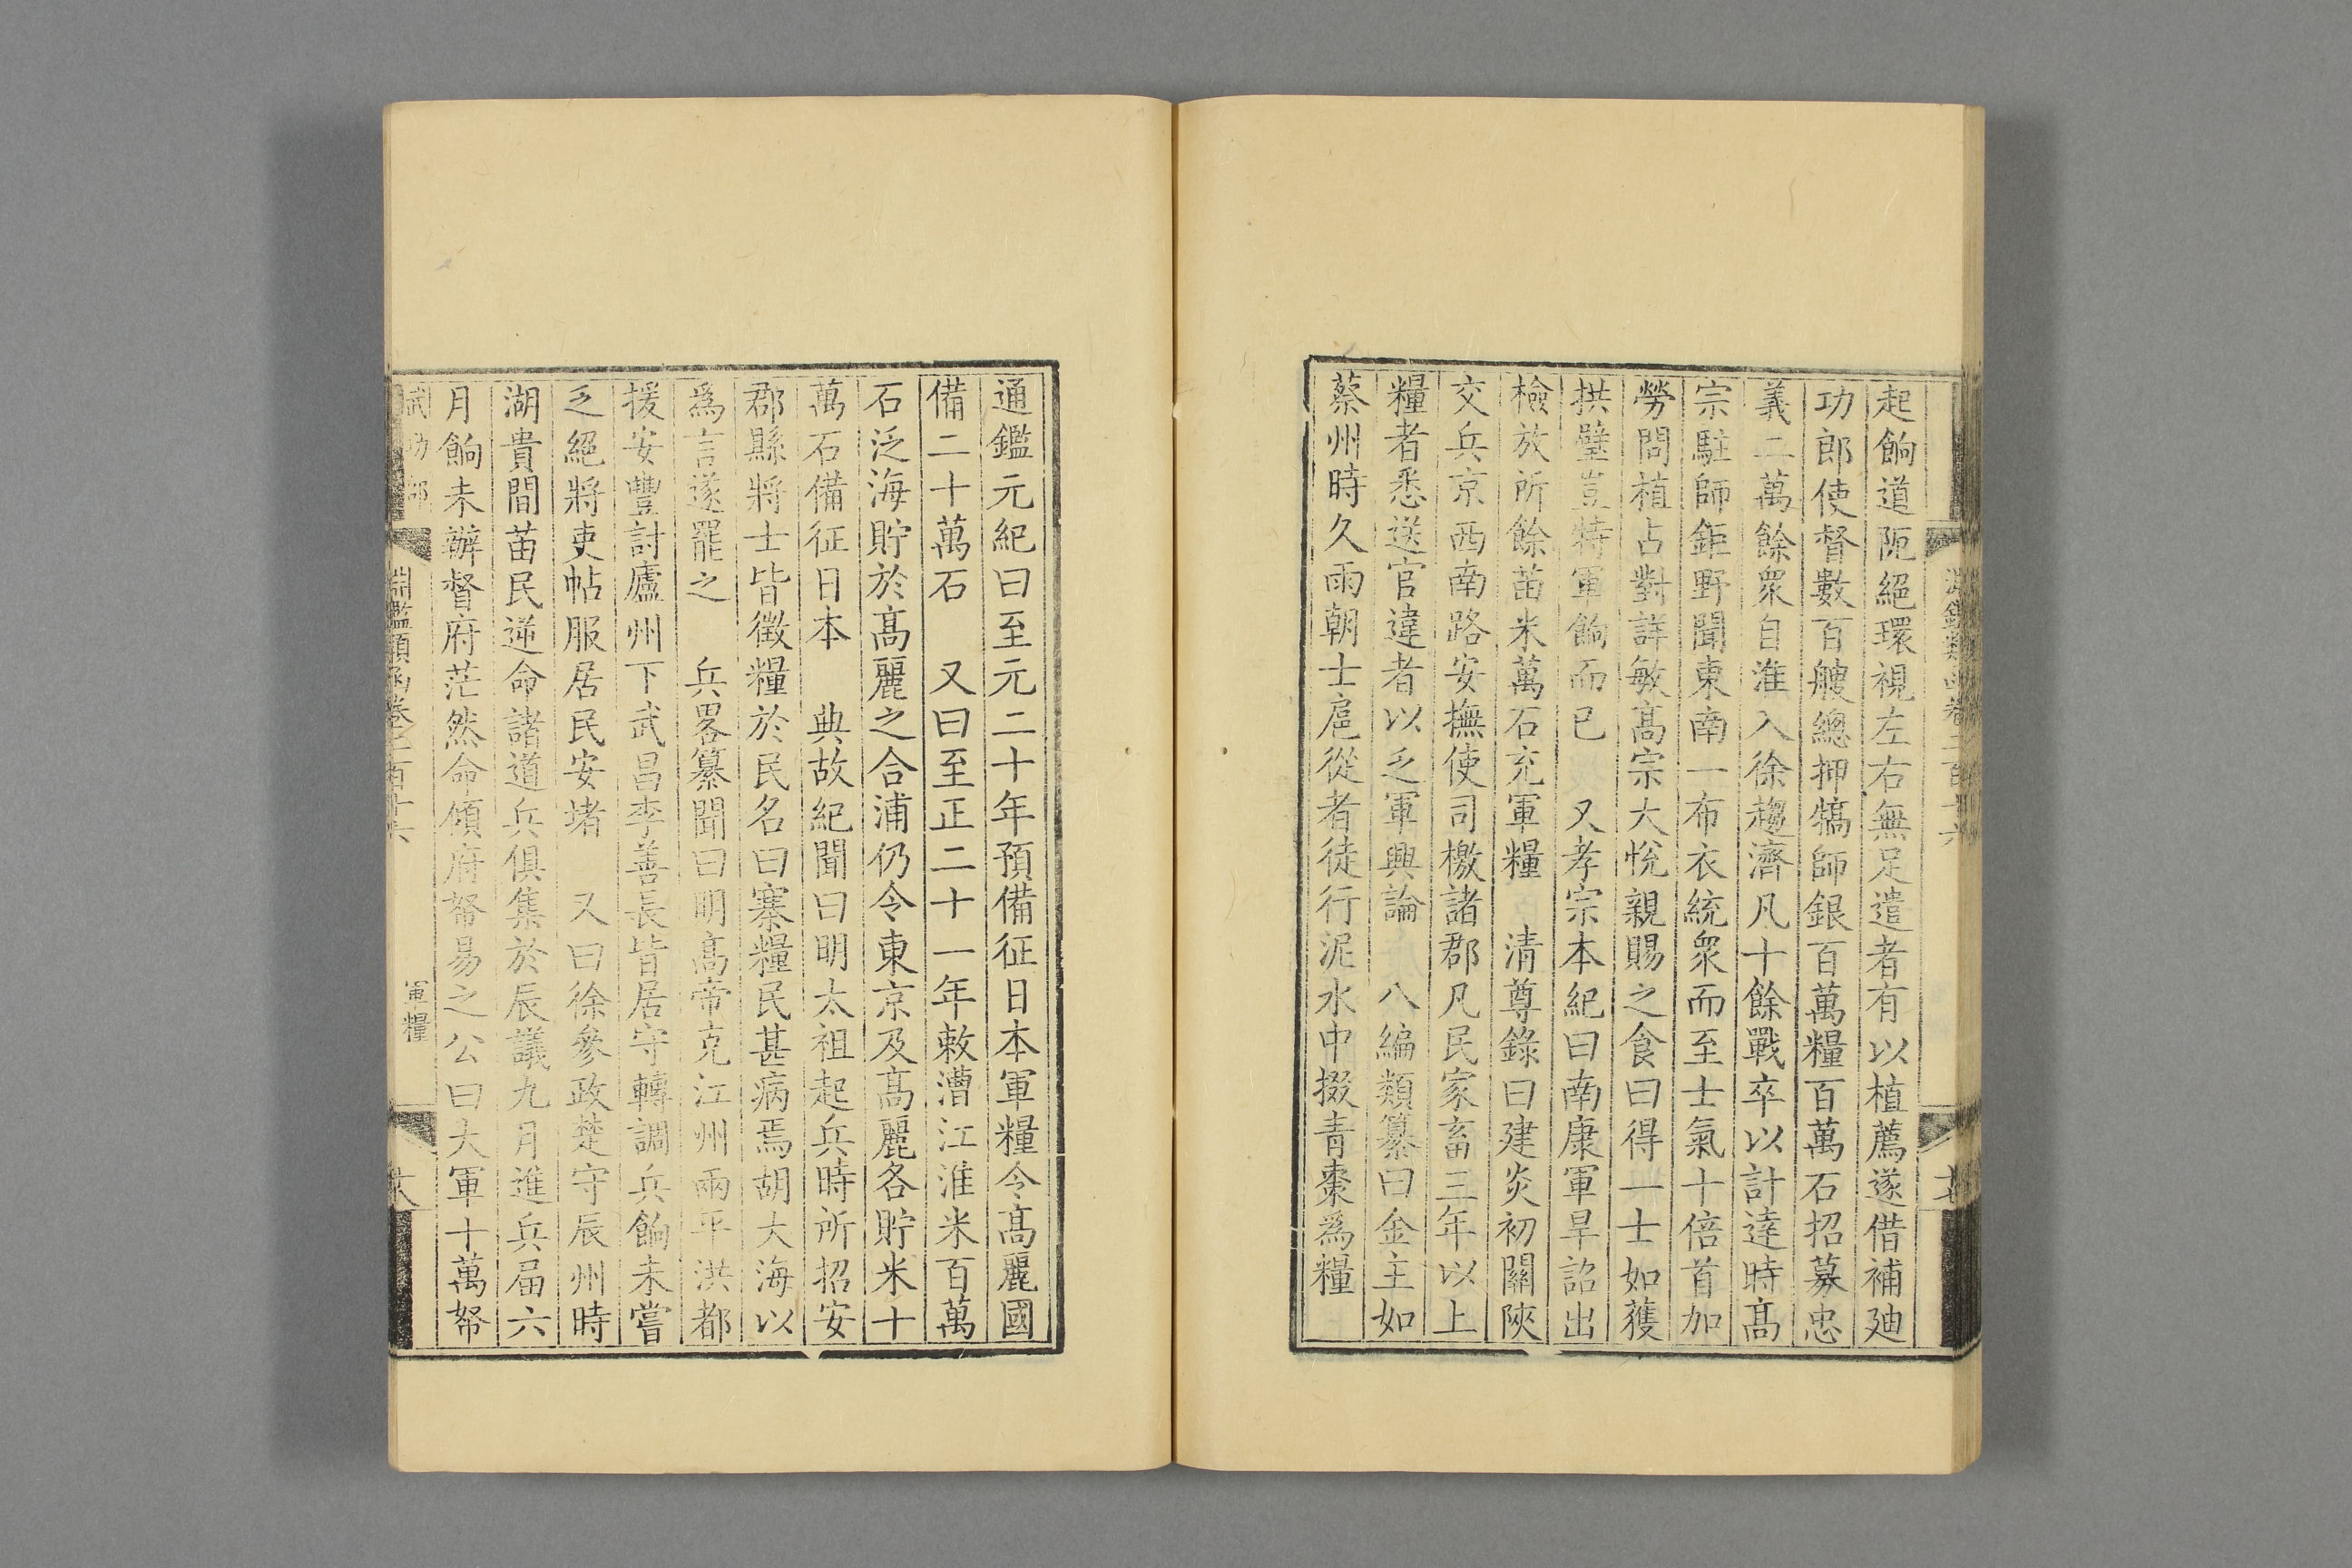 起餉道阨絕環視左右無足遣者有以植薦遂借補廸
功郎使督數百艘總押犒師銀百萬糧百萬石招募忠
義二萬餘衆自淮入徐趨濟凡十餘戰卒以計達時髙
宗駐師鉅野聞東南一布衣統衆而至士氣十倍首加
勞問植占對詳敏髙宗大悅親賜之食曰得一士如獲
拱璧豈特軍餉而已 又孝宗本紀曰南康軍旱詔出
檢放所餘苗米萬石充軍糧 清尊錄曰建炎初關陝
交兵京西南路安撫使司檄諸郡凡民家畜三年以上
糧者悉送官違者以乏軍興論 八編類纂曰金主如
蔡州時久雨朝士扈從者徒行泥水中掇青棗爲糧
通鑑元紀曰至元二十年預備征日本軍糧令髙麗國
備二十萬石 又曰至正二十一年敕漕江淮米百萬
石泛海貯於髙麗之合浦仍令東京及髙麗各貯米十
萬石備征日本 典故紀聞曰明太祖起兵時所招安
郡縣將士皆徵糧於民名曰寨糧民甚病焉胡大海以
爲言遂罷之 兵畧纂聞曰明髙帝克江州兩平洪都
援安豐討廬州下武昌李善長皆居守轉調兵餉未嘗
乏絕將吏帖服居民安堵 又曰徐參政楚守辰州時
湖貴間苗民逆命諸道兵俱集於辰議九月進兵届六
月餉未辦督府茫然命傾府帑易之公曰大軍十萬帑
武功部 淵鑑類函卷二百十六 軍糧 十八